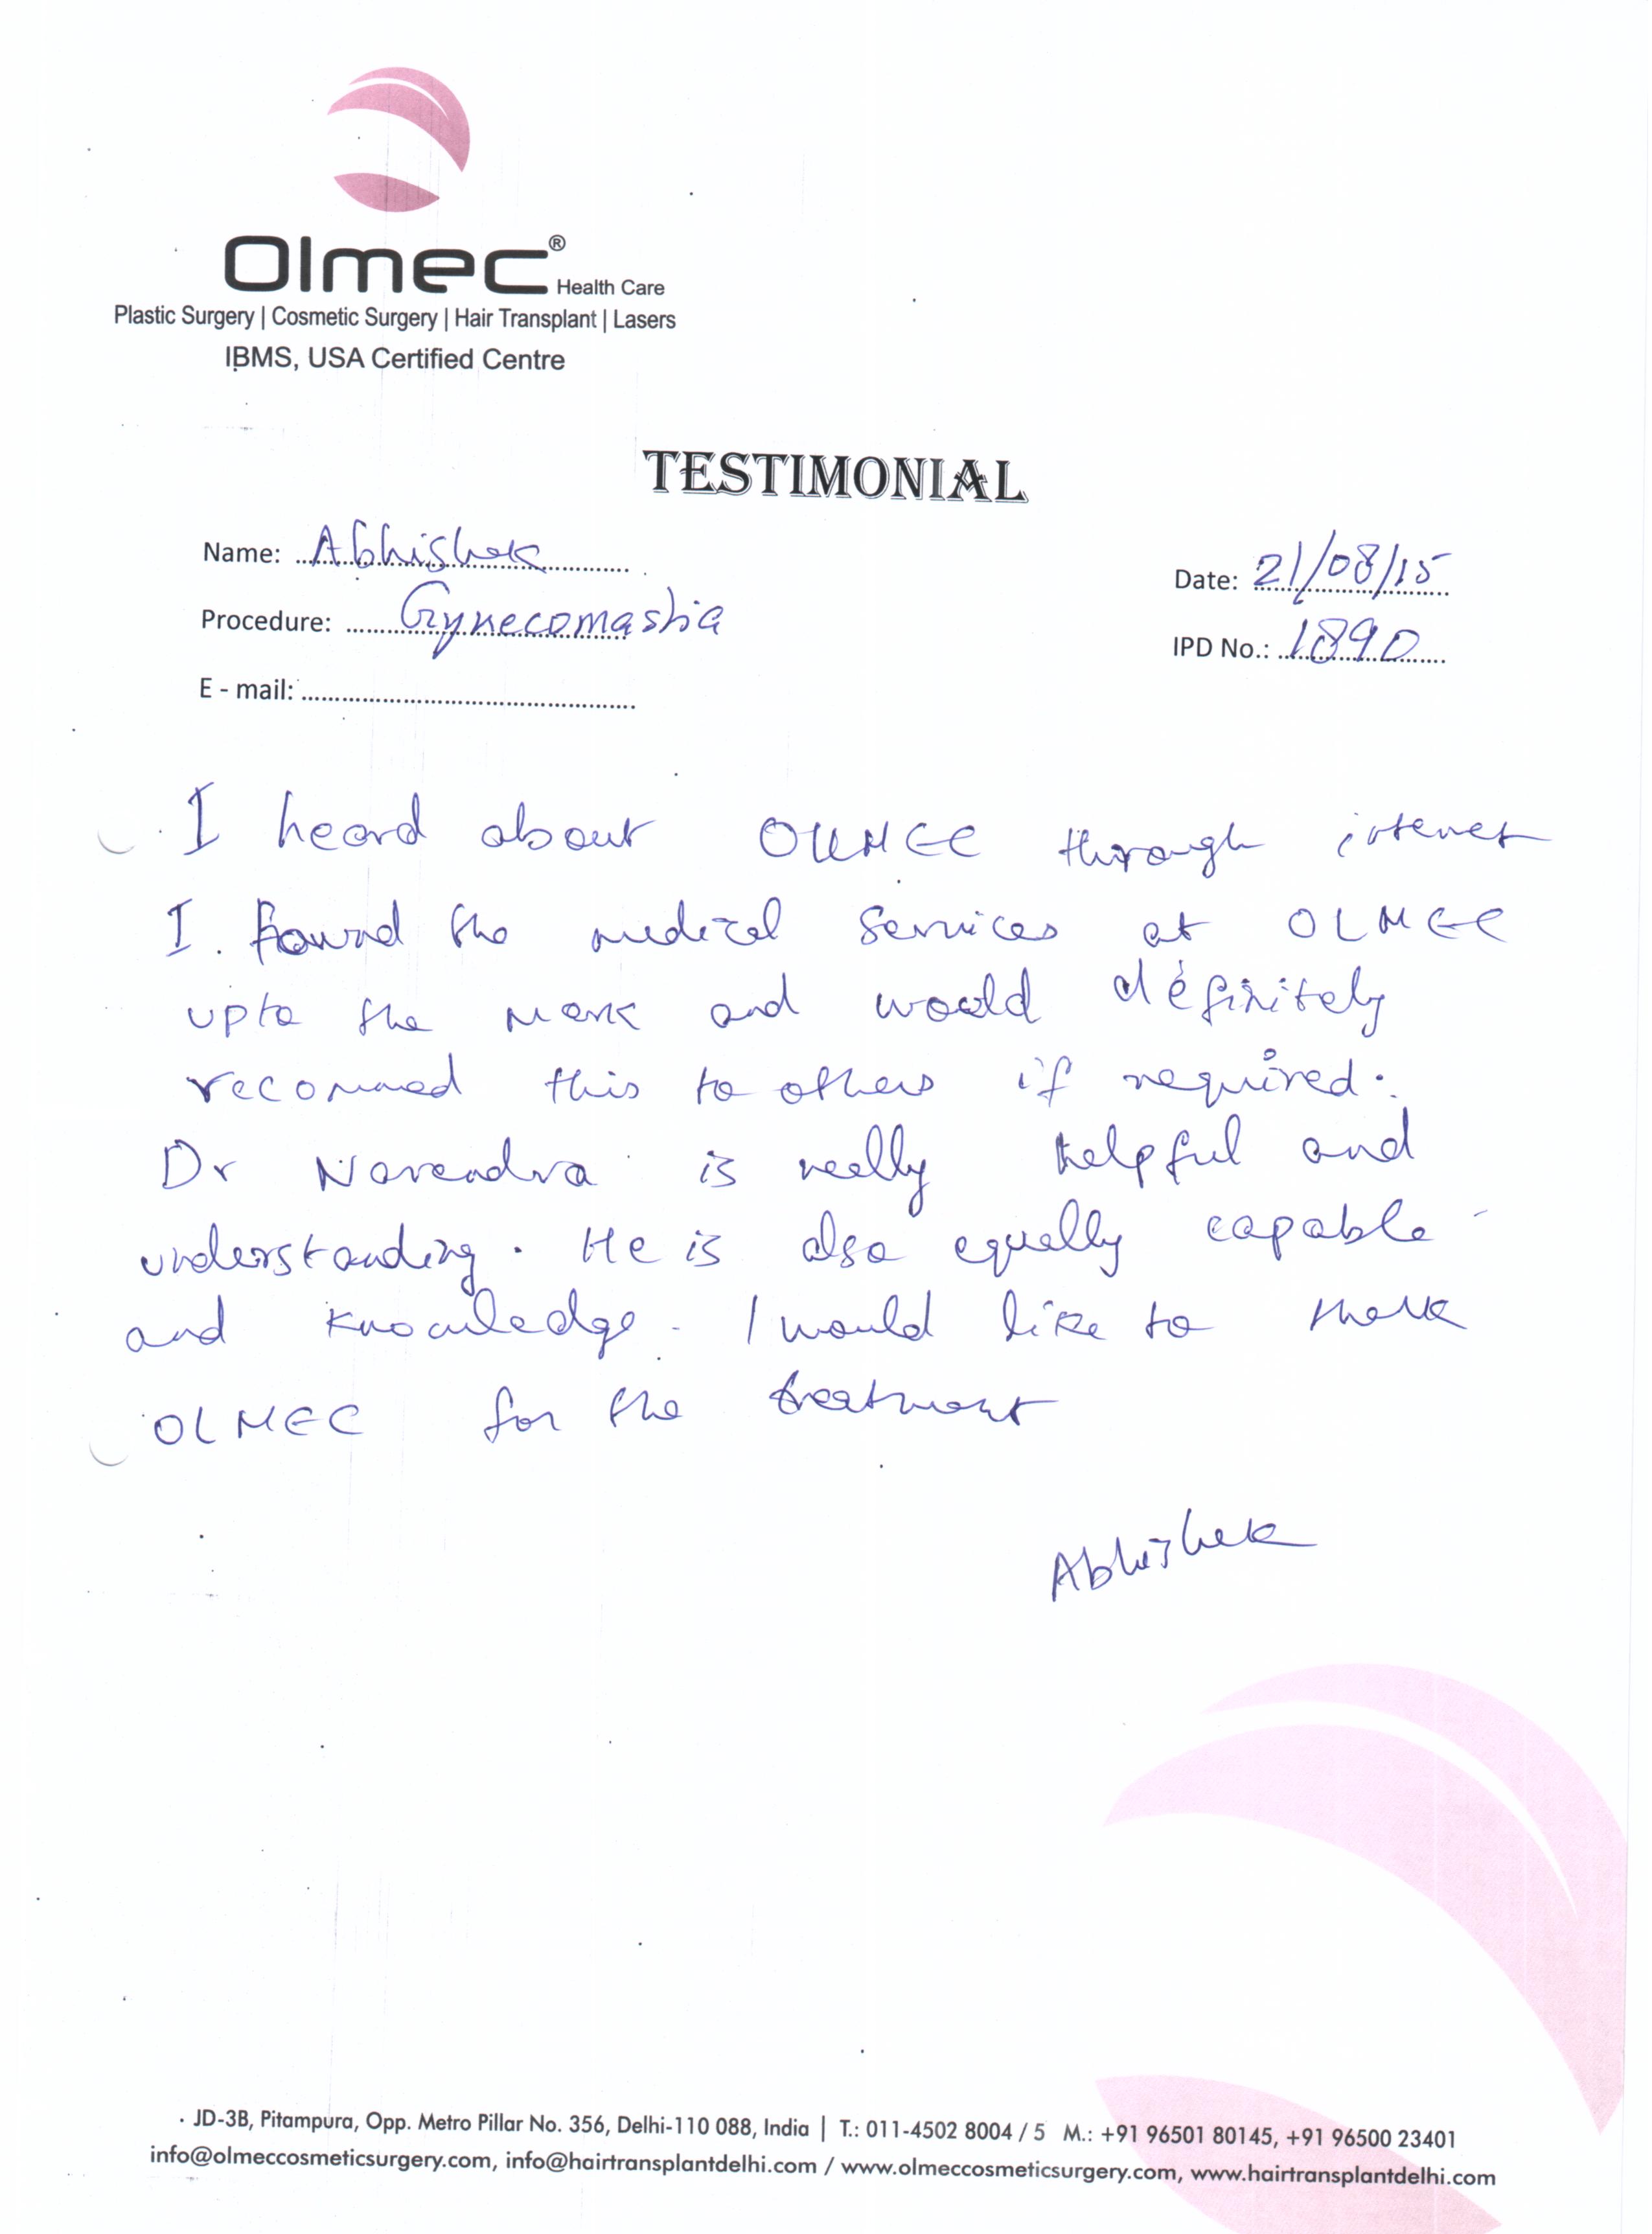 Olmec® Health Care
Plastic Surgery | Cosmetic Surgery | Hair Transplant | Lasers
IBMS, USA Certified Centre
TESTIMONIAL
Name: Abhishek
Date: 21/08/15
Procedure: Gynecomastia
IPD No.: 1890
E - mail:
I heard about OLMEC through internet
I found the medical services at OLMEC
upto the mark and would definitely
recommed this to others if required.
Dr Narendra is really helpful and
understanding. He is also equally capable
and knowledge. I would like to thank
OLMEC for the treatment
Abhishek
JD-3B, Pitampura, Opp. Metro Pillar No. 356, Delhi-110 088, India | T.: 011-4502 8004 / 5 M.: +91 96501 80145, +91 96500 23401
info@olmeccosmeticsurgery.com, info@hairtransplantdelhi.com / www.olmeccosmeticsurgery.com, www.hairtransplantdelhi.com